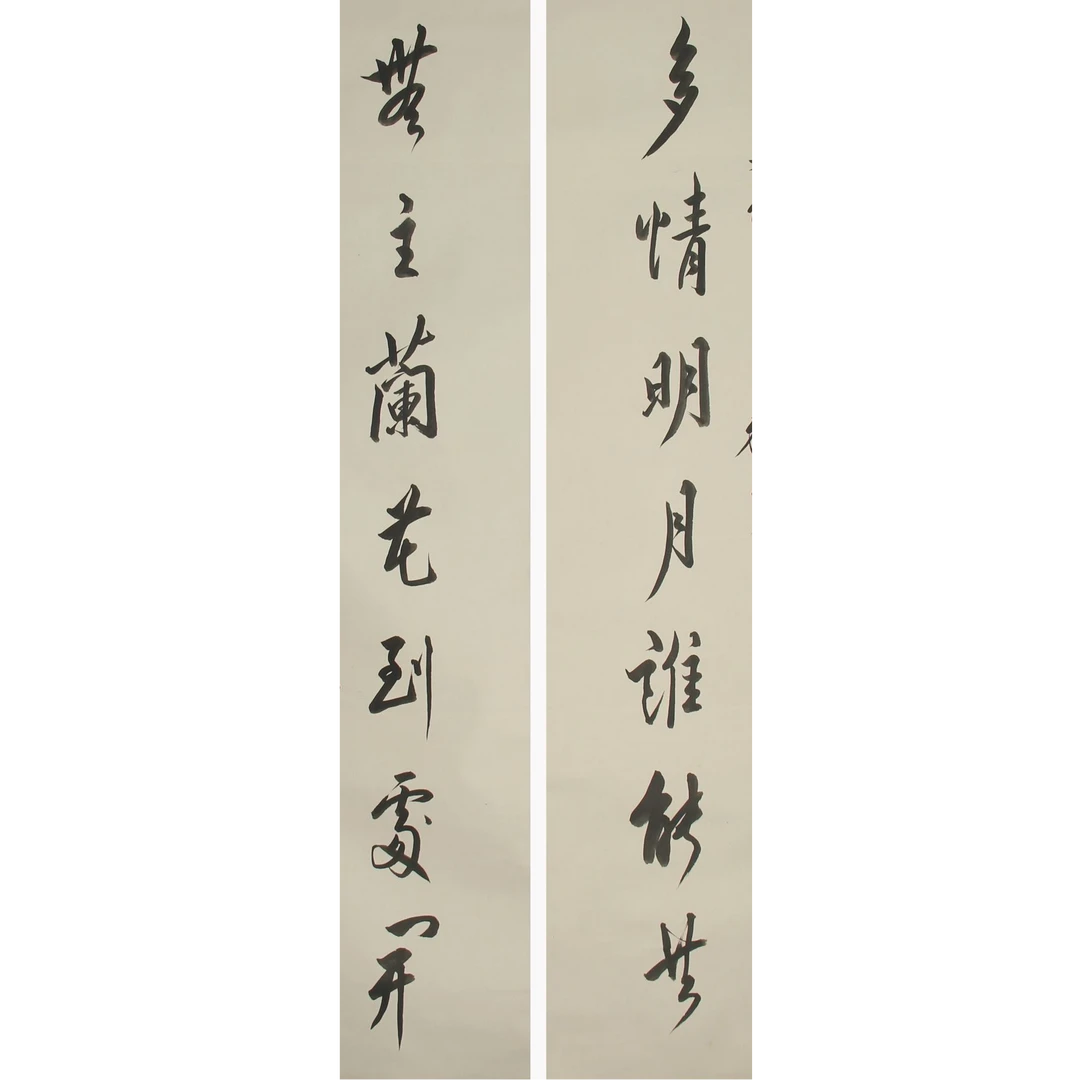 多情明月誰能共
無主蘭花到處開